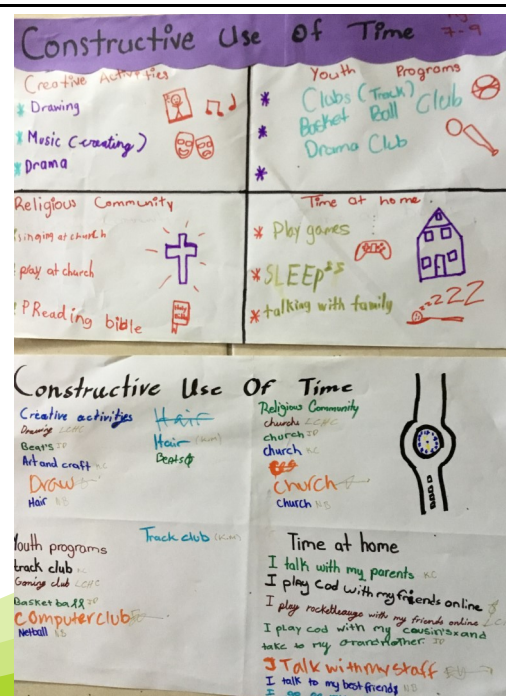 Constructive Use Of Time
7-9
Creative Activities
* Drawing
* Music (creating)
* Drama
Youth Programs
* Clubs (Track)
* Basket Ball Club
Drama Club
*
Religious Community
singing at church
play at church
Reading bible
Time at home
* Play games
* SLEEP
zzZZZ
* talking with family
Constructive Use Of Time
Creative activities
Drawing LCHC
Beats JD
Art and craft KC
Draw
Hair NB
Hair
Hair (Kim)
Beats
Religious Community
church LCHC
church JD
church KC
Church
Church NB
Youth programs
track club
Gaming club LCHC
Basket ball JD
Computer club
Netball NB
Track club (Kim)
Time at home
I talk with my parents KC
I play Cod with my friends online
I play rocket leauge with my friends online
I play cod with my cousin's and
take to my grandmother. JD
I Talk with my staff
I talk to my best friends NB